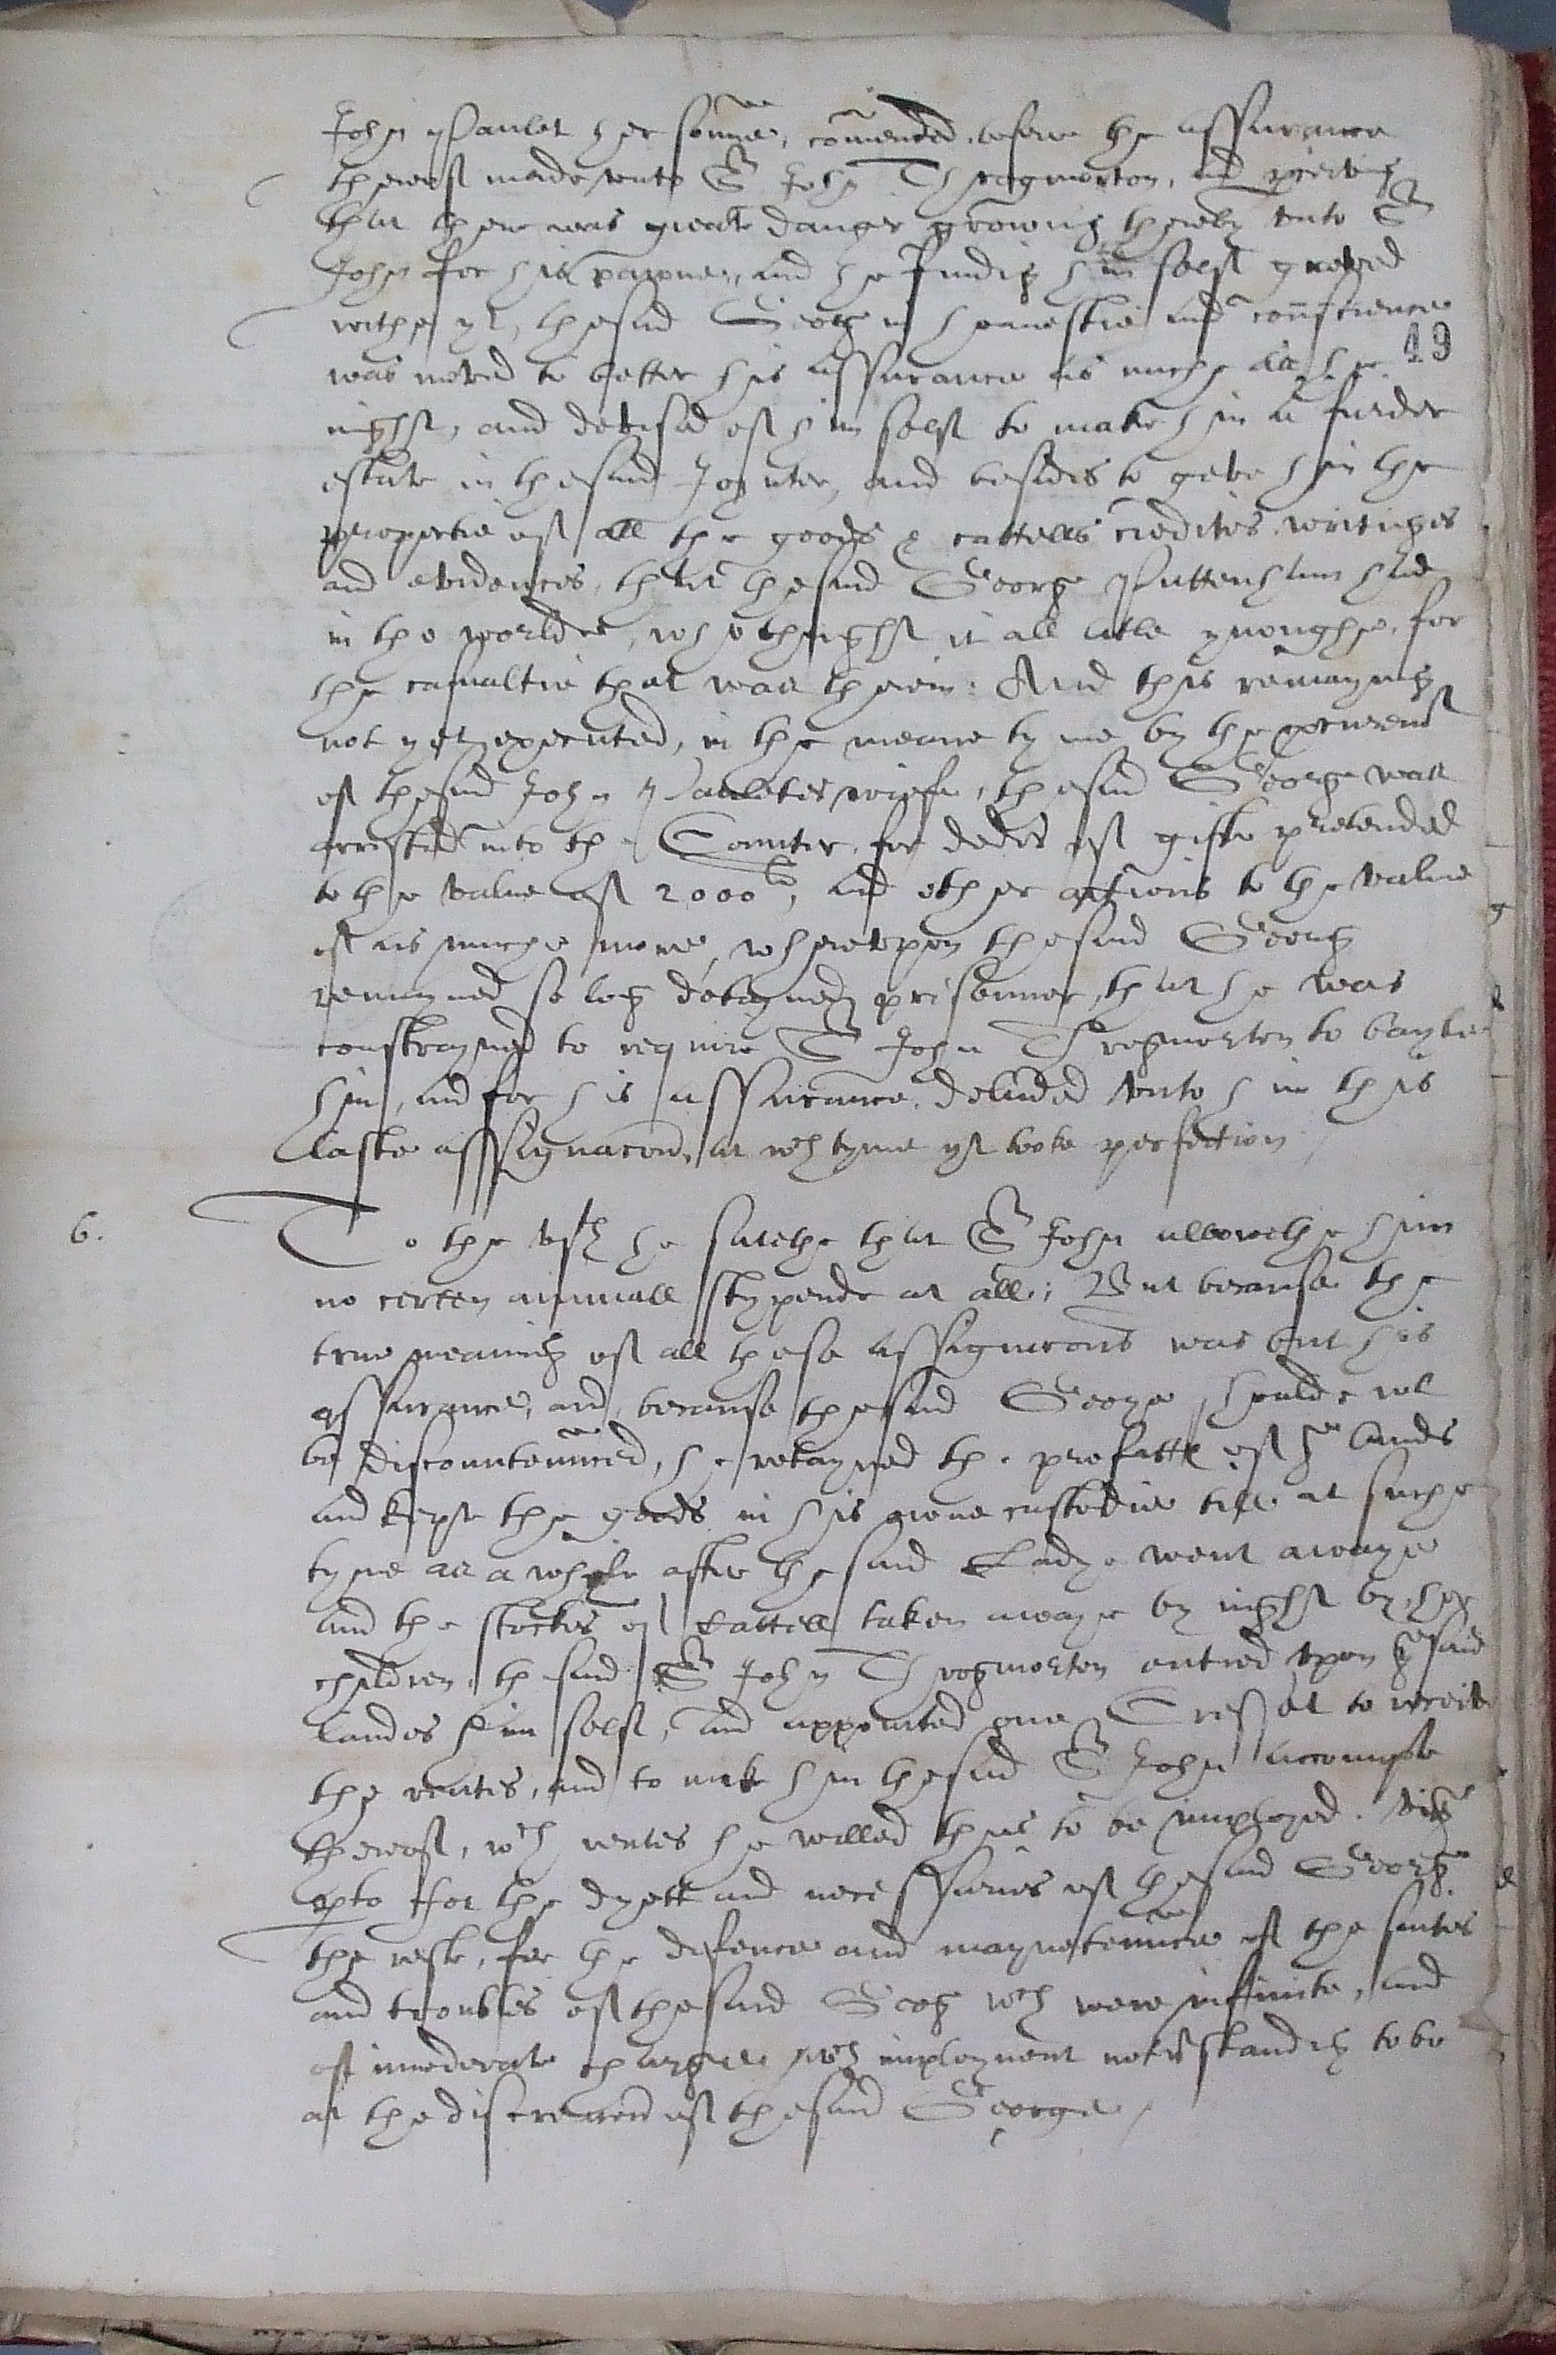 John Paulet her sonne, comended, before the assurance
therof made unto Sr John Throgmorton, and perceiving
that there was great danger growing therby unto Sr
John for his pawne, and he finding him self greved
withe yt, thesaid Georg in honnestie and conscience
was moved to better his assurance as muche as he 49
might, and devised of him self to make him a furder
estate in thesaid Joynter, and besides to geve him the
propertie of all the goods & cattells credites writinges
and evidences, that thesaid George Puttenham had
in the worlde, who thought it all litle ynoughe, for
the casualtie that was therin: And this remayning
not yet executed, in the meane tyme by the procurement
of thesaid John Pauletes wiefe, thesaid George was
arrested into the Counter, for dedes of gifte pretended
to the value of 2000li, and other actions to the value
of as muche more, wherupon thesaid Georg
remayned so long deteyned prisonner, that he was
constrayned to require Sr John Throgmorton to bayle
him, and for his assurance, deliuered unto him this
laste assignacon, at wch tyme yt tooke perfection.
6. To the vjth he saiethe that Sr John allowethe him
no certen annuall stypende at all; But because the
true meaning of all these assignacons was but his
assurance, and because thesaid George shoulde not
be discountenanced, he retayned the profitts of the lands
and kepte the goods in his owne custodie till at suche
tyme as a while after the said Ladye went awaye
and the stockes of Cattell taken awaye by night by her
children, the said Sr John Throgmorton entred upon the said
landes him self, and appointed one Tressat to receive
the rentes, and to make him thesaid Sr John accompte
therof, wch rentes he willed thus to be imployed. viz
parte for the dyett and necessaries of thesaid Georg
the reste, for the defence and mayntenance of the suites
and troubles of thesaid Georg wch were infinite, and
of imoderate charges, wch imployment notwthstanding to be
at the discreacon of thesaid George /